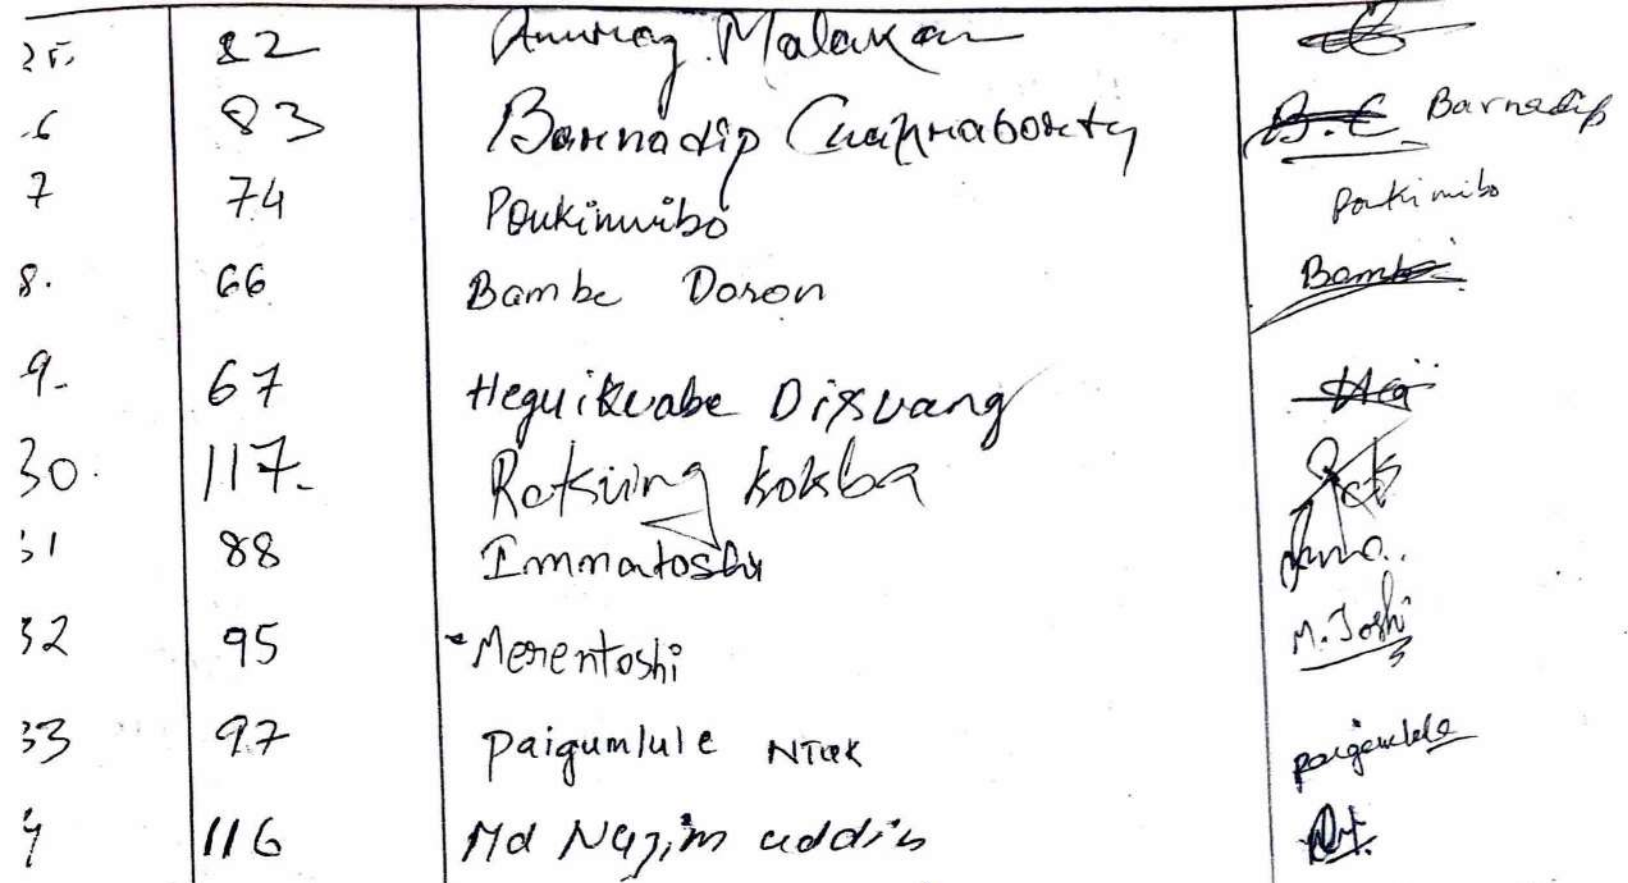 25. 82 Anurag Malakar
6 83 Barnadip Chakraborty B.C Barnadip
7 74 Poukinwibo Poukinwibo
8. 66 Bambe Doron Bambe
9. 67 Heguikuabe Disuang Heg
30. 117. Roksiing kokba
31 88 Immatoshi Imma..
32 95 Merentoshi M. Toshi
33 97 Paigumlule NTuk paigumlule
4 116 Md Nazim uddin